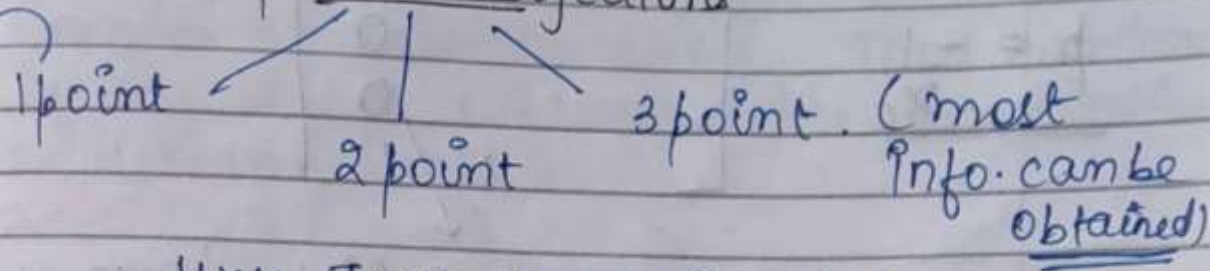 1 point
2 point
3 point. (most
Info. can be
obtained)